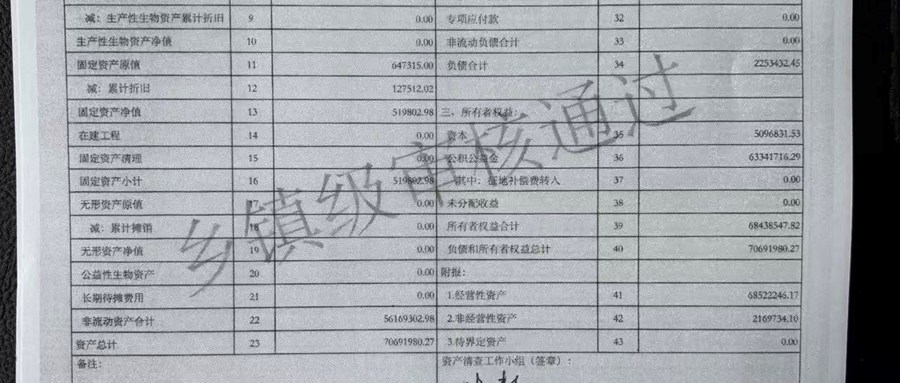 减：生产性生物资产累计折旧 9 0.00 专项应付款 32 0.00
生产性生物资产净值 10 0.00 非流动负债合计 33 0.00
固定资产原值 11 647315.00 负债合计 34 2253432.45
减：累计折旧 12 127512.02
固定资产净值 13 519802.98 三、所有者权益：
在建工程 14 0.00 资本 35 5096831.53
固定资产清理 15 0.00 公积公益金 36 63341716.29
固定资产小计 16 519802.98 其中：征地补偿费转入 37 0.00
无形资产原值 17 0.00 未分配收益 38 0.00
减：累计摊销 18 0.00 所有者权益合计 39 68438547.82
无形资产净值 19 0.00 负债和所有者权益总计 40 70691980.27
公益性生物资产 20 0.00 附报：
长期待摊费用 21 0.00 1.经营性资产 41 68522246.17
非流动资产合计 22 56169302.98 2.非经营性资产 42 2169734.10
资产总计 23 70691980.27 3.待界定资产 43 0.00
备注： 资产清查工作小组（签章）：
乡镇级审核通过